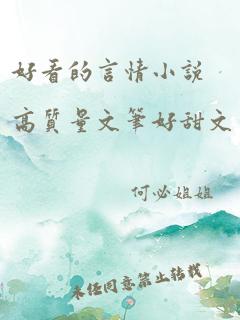 好看的言情小說
高質量文筆好甜文
何必姐姐
未經同意禁止轉載